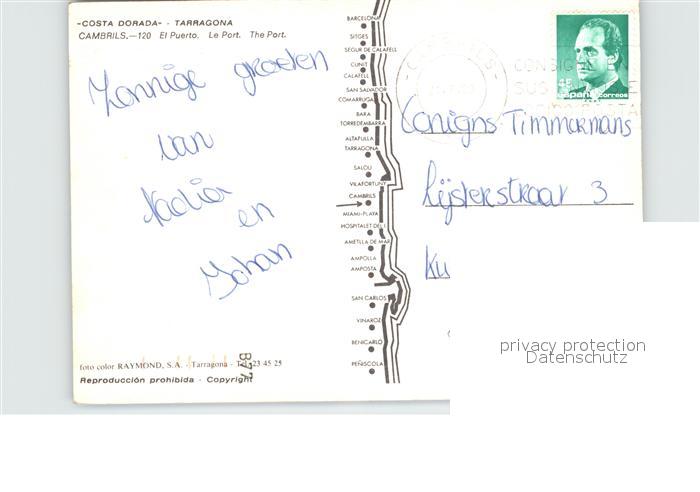 -COSTA DORADA- - TARRAGONA
CAMBRILS.—120 El Puerto. Le Port. The Port.
Zonnige groeten
van
Nadia
en
Johan
foto color RAYMOND, S.A. - Tarragona - Tel. 23 45 25
Reproducción prohibida - Copyright
B77
BARCELONA
SITGES
SEGUR DE CALAFELL
CUNIT
CALAFELL
SAN SALVADOR
COMARRUGA
BARA
TORREDEMBARRA
ALTAFULLA
TARRAGONA
SALOU
VILAFORTUNY
CAMBRILS
MIAMI-PLAYA
HOSPITALET DEL I.
AMETLLA DE MAR
AMPOLLA
AMPOSTA
SAN CARLOS
VINAROZ
BENICARLO
PEÑISCOLA
CONSIG
SUS
España correos
Timmermans
Lijsterstraat 3
Ku
privacy protection
Datenschutz